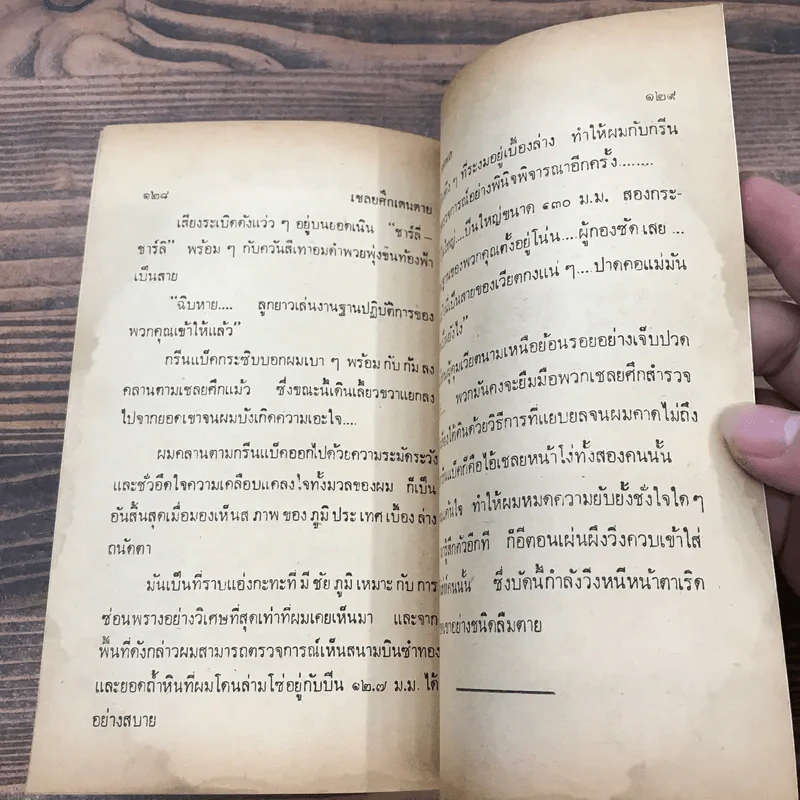 ๑๒๘ เชลยศึกเดนตาย
เสียงระเบิดดังแว่ว ๆ อยู่บนยอดเนิน “ชาร์ลี –
ชาร์ลี” พร้อม ๆ กับควันสีเทาอมดำพวยพุ่งขึ้นท้องฟ้า
เป็นสาย
“ฉิบหาย.... ลูกยาวเล่นงานฐานปฏิบัติการของ
พวกคุณเข้าให้แล้ว”
กรีนแบ็คกระซิบบอกผมเบา ๆ พร้อม กับ ก้ม ลง
คลานตามเชลยศึกแม้ว ซึ่งขณะนี้เดินเลี้ยวขวาแยกลง
ไปจากยอดเขาจนผมบังเกิดความเอะใจ....
ผมคลานตามกรีนแบ็คออกไปด้วยความระมัดระวัง
และชั่วอึดใจความเคลือบแคลงใจทั้งมวลของผม ก็เป็น
อันสิ้นสุดเมื่อมองเห็นส ภาพ ของ ภูมิ ประ เทศ เบื้อง ล่าง
ถนัดตา
มันเป็นที่ราบแอ่งกะทะที่ มี ชัย ภูมิ เหมาะ กับ การ
ซ่อนพรางอย่างวิเศษที่สุดเท่าที่ผมเคยเห็นมา และจาก
พื้นที่ดังกล่าวผมสามารถตรวจการณ์เห็นสนามบินซำทอง
และยอดถ้ำหินที่ผมโดนล่ามโซ่อยู่กับปืน ๑๒.๗ ม.ม. ได้
อย่างสบาย
๑๒๙
ๆ ที่ระงมอยู่เบื้องล่าง ทำให้ผมกับกรีน
อย่างพินิจพิจารณาอีกครั้ง........
ใหญ่....ปืนใหญ่ขนาด ๑๓๐ ม.ม. สองกระ-
ของพวกคุณตั้งอยู่โน่น....ผู้กองซัด เสย ...
เป็นสายของเวียตกงแน่ ๆ....ปาดคอแม่มัน
ยังไง”
คุมเวียตนามเหนือย้อนรอยอย่างเจ็บปวด
พวกมันคงจะยืมมือพวกเชลยศึกสำรวจ
ใต้ดินด้วยวิธีการที่แยบยลจนผมคาดไม่ถึง
แบ็คก็คือไอ้เชลยหน้าโง่ทั้งสองคนนั้น
ทำให้ผมหมดความยับยั้งชั่งใจใด ๆ
รู้สึกตัวอีกที ก็อีตอนเผ่นผึงวิ่งควบเข้าใส่
คนนั้น ซึ่งบัดนี้กำลังวิ่งหนีหน้าตาเริด
อย่างชนิดลืมตาย